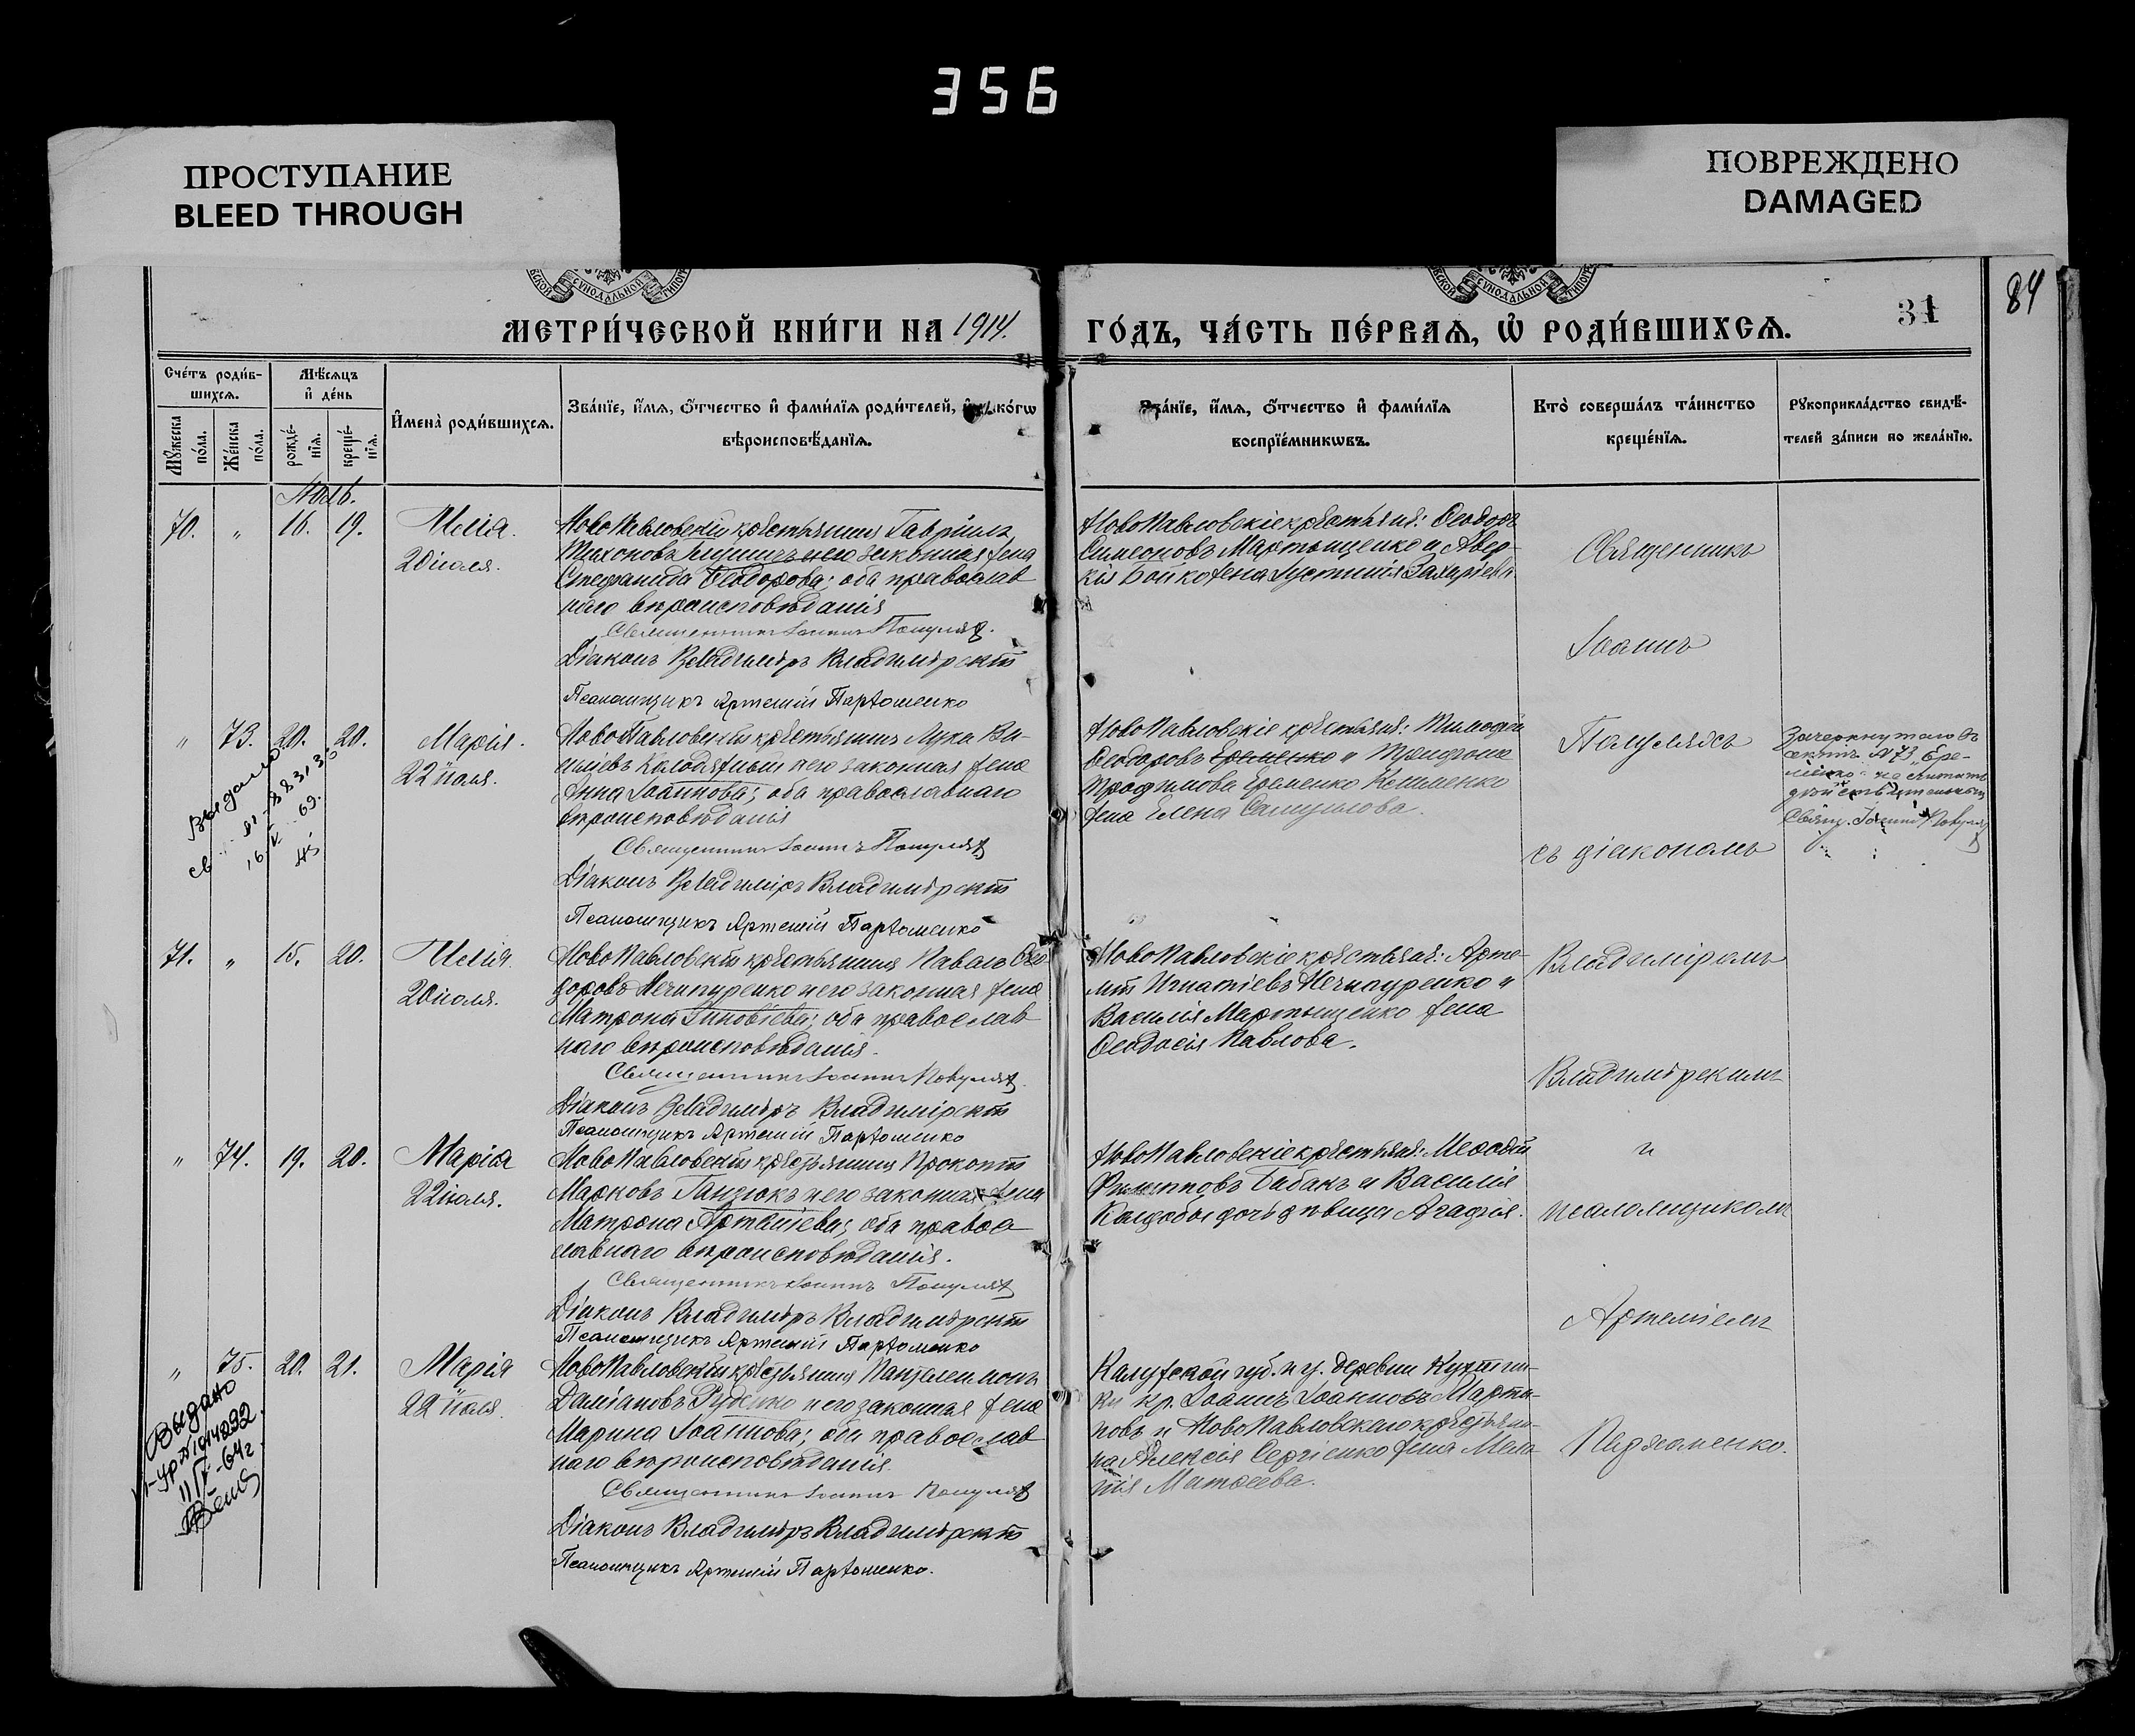 356
ПРОСТУПАНИЕ
BLEED THROUGH
ПОВРЕЖДЕНО
DAMAGED
МЕТРИ́ЧЕСКОЙ КНИ́ГИ НА 1914.
ГО́ДЪ, ЧА́СТЬ ПЕ́РВАѦ, Ѡ҆ РОДИ́ВШИХСѦ.
31
84
Сче́тъ роди́в-
шихсѧ.
Мѣ́сѧцъ
и҆ де́нь
Мꙋ́жеска
по́ла.
Же́нска
по́ла.
рожде́-
нїѧ.
креще́-
нїѧ.
И҆мена̀ роди́вшихсѧ.
Зва́нїе, и҆́мѧ, ѻ҆́тчество и҆ фами́лїѧ роди́телей, и҆ како́гѡ
вѣроисповѣ́данїѧ.
Зва́нїе, и҆́мѧ, ѻ҆́тчество и҆ фами́лїѧ
воспрїе́мникѡвъ.
Кто̀ соверша́лъ та́инство
креще́нїѧ.
Рꙋкоприкла́дство свидѣ́-
телей за́писи по жела́нїю.
Іюль.
70. " 16. 19. Илія.
20 іюля.
НовоПавловскій крестьянинъ Гавріилъ
Тихоновъ и его законная жена
Стефанида Ѳеодорова; оба православ
наго вѣроисповѣданія
Священникъ Іоаннъ
Діаконъ Владиміръ Владимірскій
Псаломщикъ Артемій Пархоменко
НовоПавловскіе крестьяне: Ѳеодоръ
Симеоновъ Мартыщенко и Авер-
кія Бойко жена Іустинія Захаріева.
" 73. 20. 20. Марія.
22 іюля.
НовоПавловскій крестьянинъ Лука Ва-
Колодяжный и его законная жена
Анна Іоаннова; оба православнаго
вѣроисповѣданія
Священникъ Іоаннъ
Діаконъ Владиміръ Владимірскій
Псаломщикъ Артемій Пархоменко
НовоПавловскіе крестьяне: Тимоѳей
Ѳеодоровъ Еременко и Трифона
Трофимова Еременко
жена Елена Самуилова.
Зачеркнутаго въ
актѣ № 73 „Ере-
менко" не считать
дѣйствительнымъ
Свящ. Іоаннъ
Выдано
16/X 69.
71. " 15. 20. Илія.
20 іюля.
НовоПавловскій крестьянинъ Павелъ Ѳео
доровъ Нечипуренко и его законная жена
Матрона Зиновіева; оба православ
наго вѣроисповѣданія.
Священникъ Іоаннъ
Діаконъ Владиміръ Владимірскій
Псаломщикъ Артемій Пархоменко
НовоПавловскіе крестьяне: Арте-
мій Игнатіевъ Нечипуренко и
Василія Мартыщенко жена
Ѳеодосія Павлова.
" 74. 19. 20. Марія
22 іюля.
НовоПавловскій крестьянинъ Прокопій
Марковъ Ганзюкъ и его законная жена
Матрона Артеміева; оба правос
лавнаго вѣроисповѣданія.
Священникъ Іоаннъ
Діаконъ Владиміръ Владимірскій
Псаломщикъ Артемій Пархоменко
НовоПавловскіе крестьяне: Меѳодій
Филипповъ Бабакъ и Василія
дочь дѣвица Агафія.
" 75. 20. 21. Марія
22 іюля.
НовоПавловскій крестьянинъ Пантелеимонъ
Даміановъ Руденко и его законная жена
Марина Іоаннова; оба православ
наго вѣроисповѣданія.
Священникъ Іоаннъ
Діаконъ Владиміръ Владимірскій
Псаломщикъ Артемій Пархоменко.
Калужской губ. и у. деревни
кр. Іоаннъ Іоанновъ Марты-
новъ и НовоПавловскаго крестьяни-
на Алексія Сергіенко жена Мела
нія Матѳеева.
Выдано
11/X-64г.
Священникъ
Іоаннъ
съ діакономъ
Владиміромъ
Владимірскимъ
и
псаломщикомъ
Артеміемъ
Пархоменко.